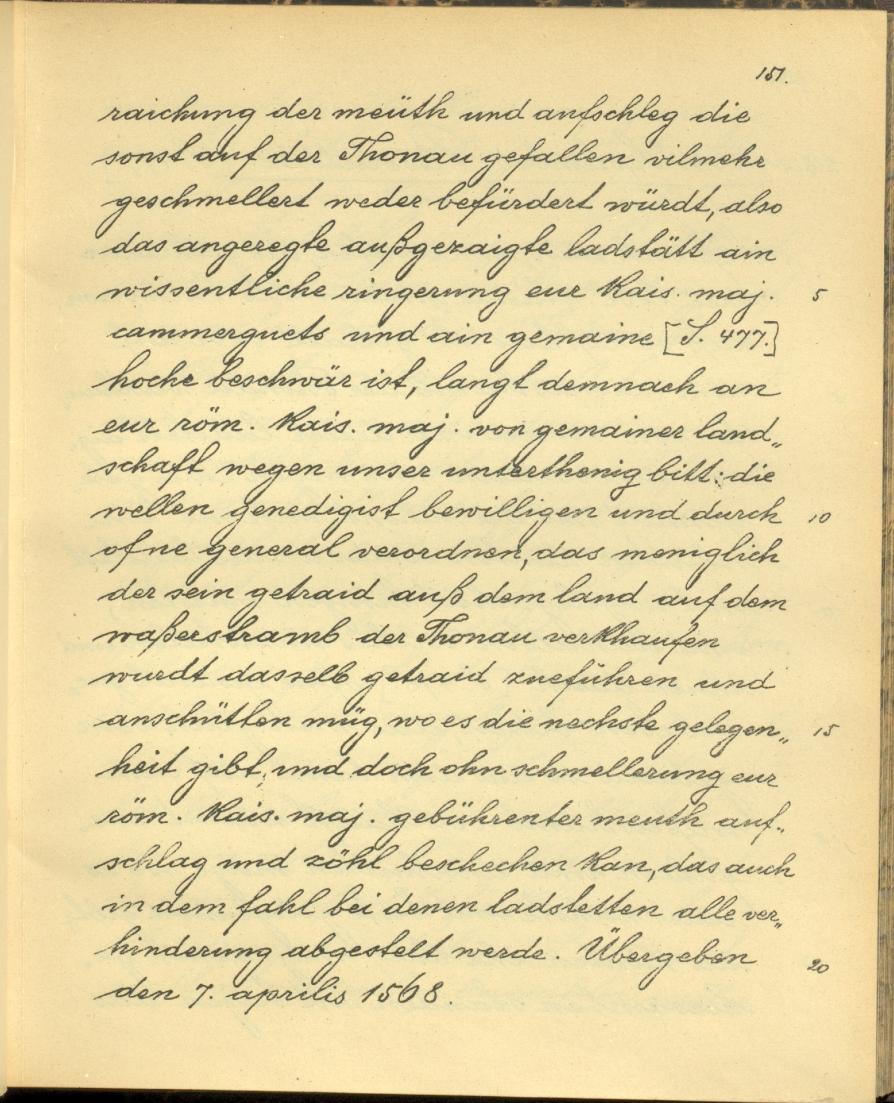 151.
raichung der meüth und aufschleg die
sonst auf der Thonau gefallen vilmehr
geschmellert weder befürdert würdt, also
das angeregte außgezaigte ladstätt ain
wissentliche ringerung eur Kais. maj. 5
cammerguets und ain gemaine [S. 477.]
hoche beschwär ist, langt demnach an
eur röm. Kais. maj. von gemainer land„
schaft wegen unser unterthenig bitt: die
wellen genedigist bewilligen und durch 10
ofne general verordnen, das meniglich
der sein getraid auß dem land auf dem
waßerstramb der Thonau verkhaufen
wurdt dasselb getraid zueführen und
anschütten müg, wo es die nechste gelegen„ 15
heit gibt, und doch ohn schmellerung eur
röm. Kais. maj. gebührenter meuth auf„
schlag und zöhl beschechen kan, das auch
in dem fahl bei denen ladstetten alle ver„
hinderung abgestelt werde. Übergeben 20
den 7. aprilis 1568.